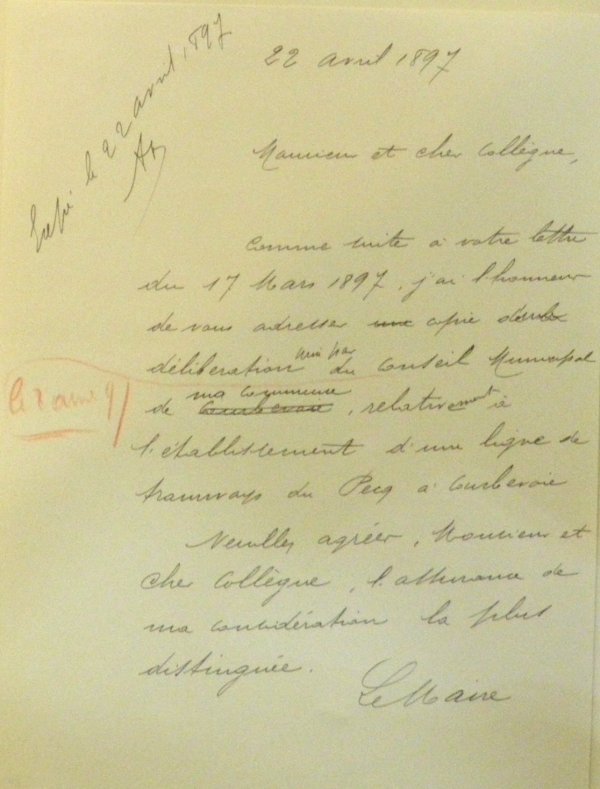 22 avril 1897
le 22 avril 1897
Monsieur et cher Collègue,
Comme suite à votre lettre
du 17 Mars 1897, j'ai l'honneur
de vous adresser une copie
délibération prise par du Conseil Municipal
de Courbevoie ma commune, relativement à
l'établissement d'une ligne de
tramways du Pecq à Courbevoie
Veuillez agréer, Monsieur et
cher Collègue, l'assurance de
ma considération la plus
distinguée.
Le Maire